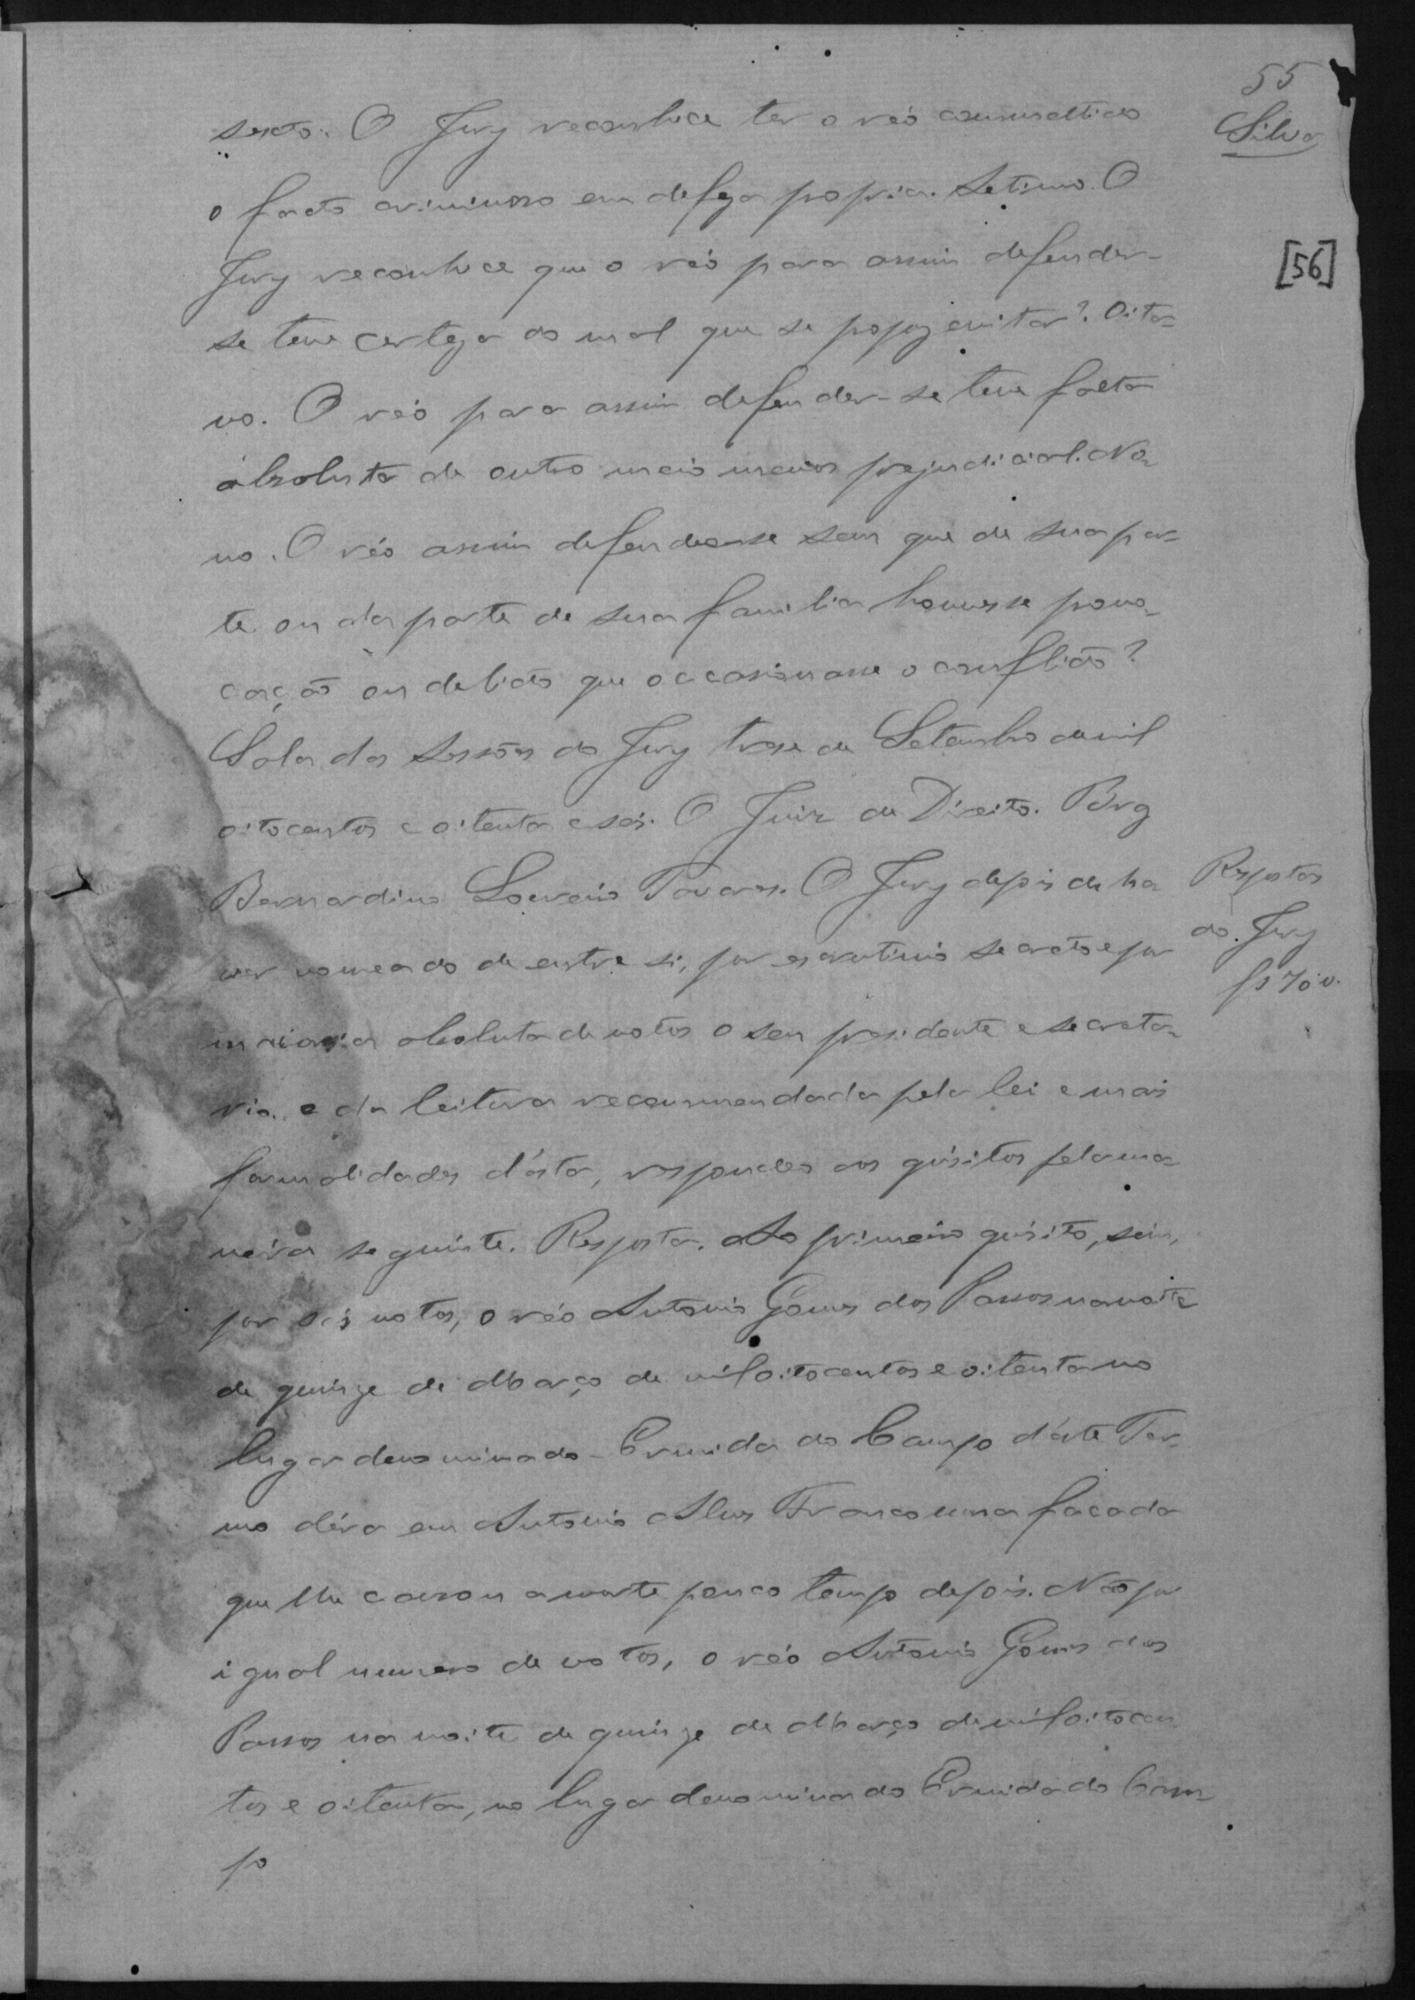 55
Silva
[56]
sexto. O Jury reconhece ter o réo commettido
o facto criminoso em defeza propria. Setimo. O
Jury reconhece que o réo para assim defender-
se teve certeza do mal que se propoz evitar? Oita-
vo. O réo para assim defender-se teve falta
absoluta de outro meio menos prejudicial. No-
no. O réo assim defendeo-se sem que de sua par-
te ou da parte de sua familia houvesse provo-
cação ou delicto que occasionasse o conflicto?
Sala das Sessões do Jury trese de Setembro de mil
oitocentos e oitenta e seis. O Juiz de Direito.
Bernardino Loureiro Tavares. O Jury depois de ha
ver nomeado de entre si, por escrutinio secreto e por
maioria absoluta de votos o seu presidente e secreta-
rio e da leitura recommendada pela lei e mais
formalidades d'ésta, respondeo aos quisitos pela ma-
neira seguinte. Resposta. Ao primeiro quisito, sim,
por seis votos, o réo Antonio Gomes dos Passos na noite
de quinze de Março de mil oitocentos e oitenta no
lugar denominado - Ermida do Campo d'éste Ter-
mo déra em Antonio Alves Franco uma facada
que lhe causou a morte pouco tempo depois. Não por
igual numero de votos, o réo Antonio Gomes dos
Passos na noite de quinze de Março de mil oitocen
tos e oitenta, no lugar denominado Ermida do Cam-
po
Respostas
do Jury
fs 70 v.